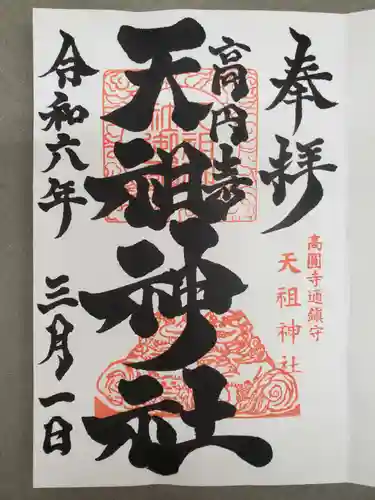 奉拝
高円寺
天祖神社
高圓寺通鎮守
天祖神社
令和六年 三月一日